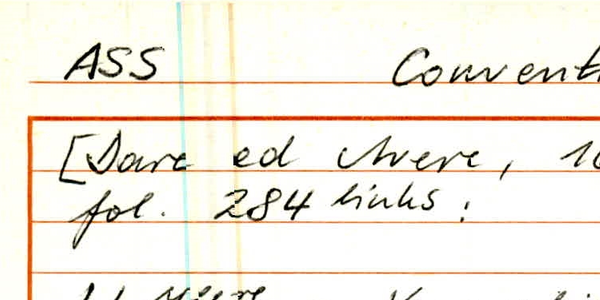 ASS Convent
[Dare ed Avere, 16
fol. 284 links: